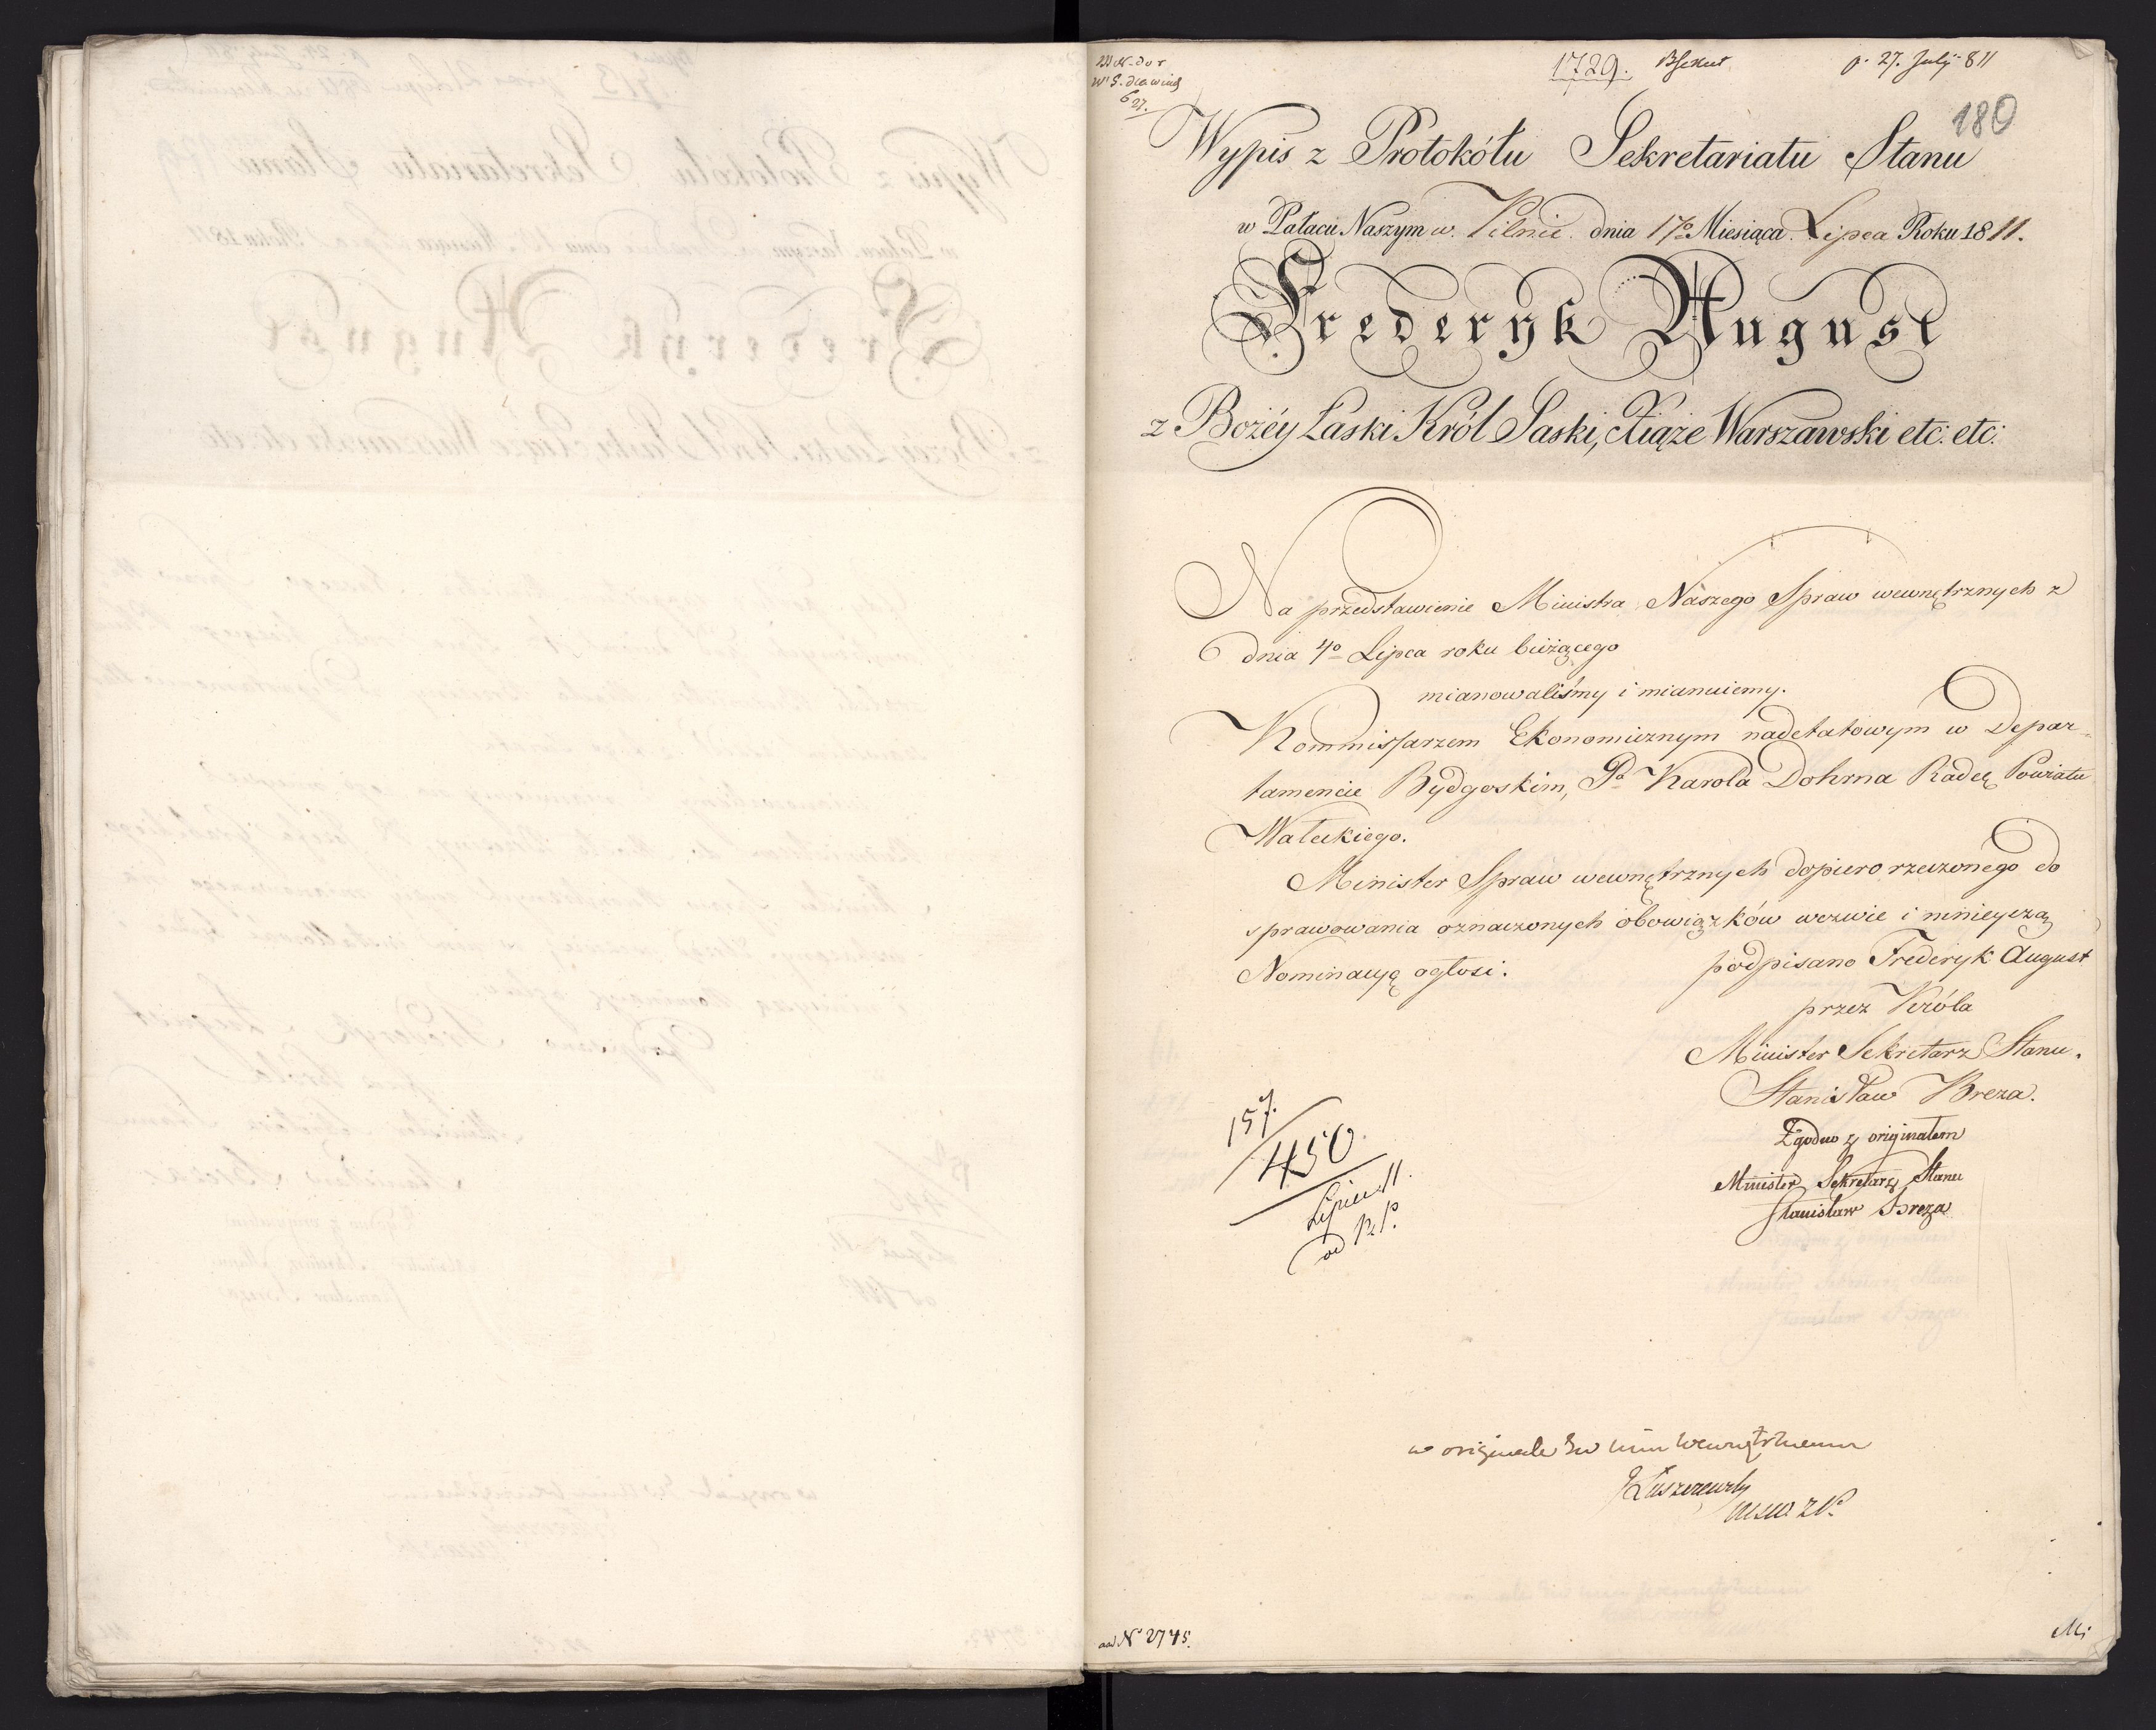 1729.
p. 27. July 811
180
Wypis z Protokółu Sekretariatu Stanu
w Pałacu Naszym w Pilnic dnia 17º Miesiąca Lipca Roku 1811.
Frederyk August
z Bożéy Łaski Król Saski, Xiąże Warszawski etc: etc:
Na przedstawienie Ministra Naszego Spraw wewnętrznych z
dnia 4º Lipca roku bieżącego
mianowaliśmy i mianuiemy.
Kommissarzem Ekonomicznym nadetatowym w Depar=
tamencie Bydgoskim, Pª Karola Dohrna Radcę Powiatu
Wałeckiego.
Minister Spraw wewnętrznych dopiero rzeczonego do
sprawowania oznaczonych obowiązków wezwie i ninieyszą
Nominacyą ogłosi.
podpisano Frederyk August
przez Króla
Minister Sekretarz Stanu.
Stanisław Breza.
Zgodno z originałem
Minister Sekretarz Stanu
Stanisław Breza
157.
450
Lipiec 11.
w originale
ad Nº 2745.